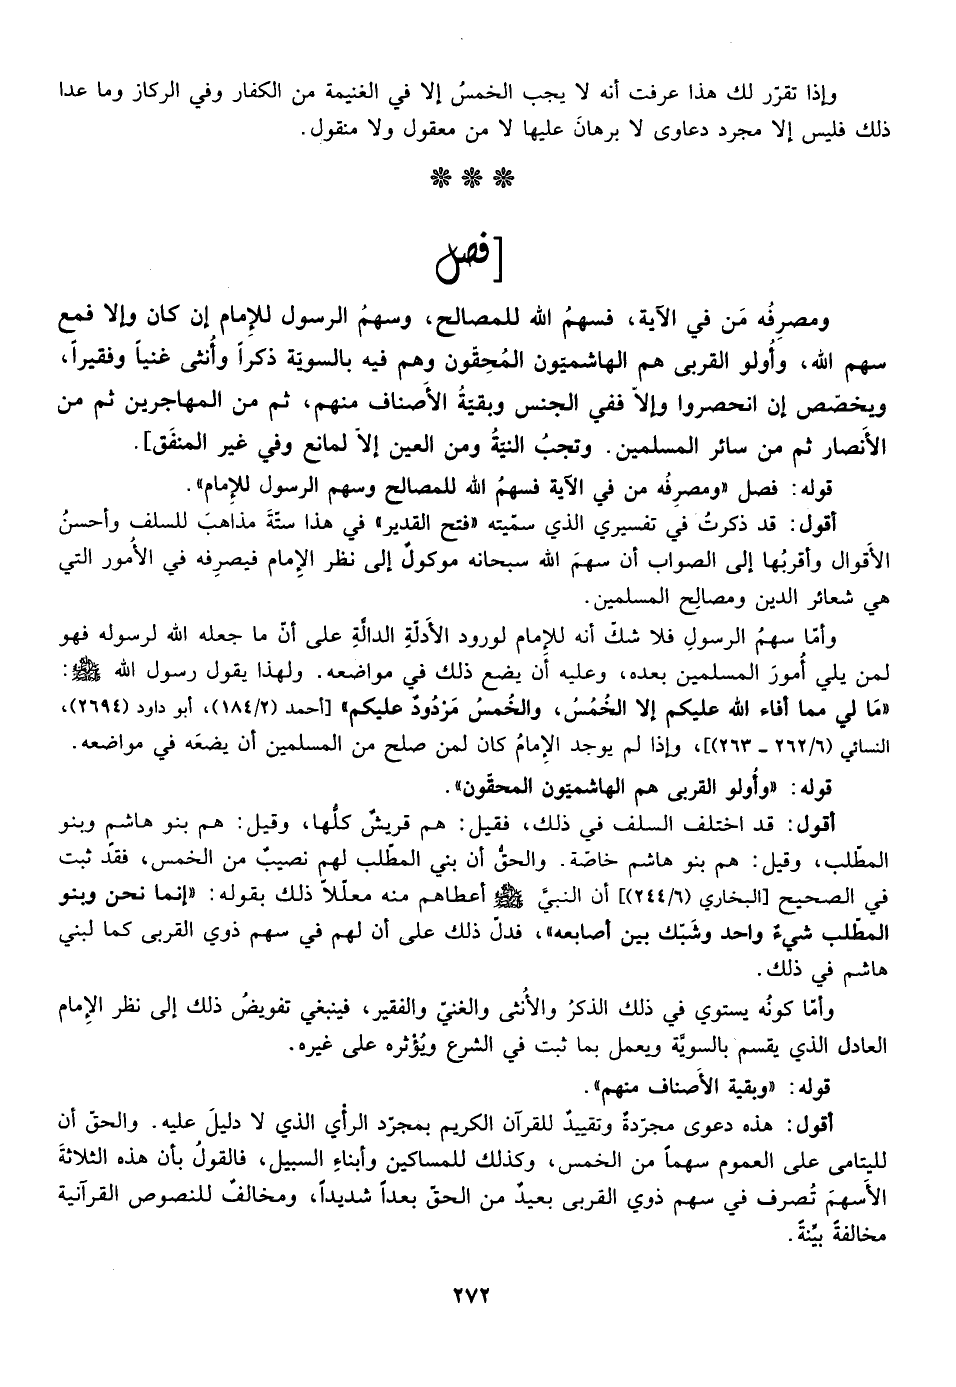 وإذا تقرّر لك هذا عرفت أنه لا يجب الخمسُ إلا في الغنيمة من الكفار وفي الركاز وما عدا
ذلك فليس إلا مجرد دعاوى لا برهانَ عليها لا من معقول ولا منقول.
[فصل
ومصرِفُه مَن في الآية، فسهمُ الله للمصالح، وسهمُ الرسول للإمام إن كان وإلا فمع
سهم الله، وأُولو القربى هم الهاشميّون المُحِقّون وهم فيه بالسويّة ذكراً وأُنثى غنياً وفقيراً،
ويخصّص إن انحصروا وإلاّ ففي الجنس وبقيّةُ الأَصناف منهم، ثم من المهاجرين ثم من
الأَنصار ثم من سائر المسلمين. وتجبُ النيّةُ ومن العين إلاّ لمانع وفي غير المنفَق].
قوله: فصل «ومصرِفُه من في الآية فسهمُ الله للمصالح وسهم الرسول للإمام».
أقول: قد ذكرتُ في تفسيري الذي سمّيته «فتح القدير» في هذا ستّةَ مذاهبَ للسلف وأحسنُ
الأَقوال وأقربُها إلى الصواب أن سهمَ الله سبحانه موكولٌ إلى نظر الإمام فيصرِفه في الأُمور التي
هي شعائر الدين ومصالِح المسلمين.
وأمّا سهمُ الرسولِ فلا شكّ أنه للإمام لورود الأَدلّةِ الدالَّةِ على أنّ ما جعله الله لرسوله فهو
لمن يلي أُمورَ المسلمين بعده، وعليه أن يضع ذلك في مواضعه. ولهذا يقول رسول الله ﷺ:
«مَا لي مما أفاء الله عليكم إلا الخُمُسُ، والخُمسُ مَرْدُودٌ عليكم» [أحمد (٢/١٨٤)، أبو داود (٢٦٩٤)،
النسائي (٦/٢٦٢ - ٢٦٣)]، وإذا لم يوجد الإمامُ كان لمن صلح من المسلمين أن يضعَه في مواضعه.
قوله: «وأُولو القربى هم الهاشميّون المحقّون».
أقول: قد اختلف السلف في ذلك، فقيل: هم قريشٌ كلُّها، وقيل: هم بنو هاشم وبنو
المطّلب، وقيل: هم بنو هاشم خاصّة. والحقُّ أن بني المطّلب لهم نصيبٌ من الخمس، فقد ثبت
في الصحيح [البخاري (٦/٢٤٤)] أن النبيَّ ﷺ أعطاهم منه معلّلاً ذلك بقوله: «إنما نحن وبنو
المطّلب شيءٌ واحد وشَبّك بين أصابعه»، فدلّ ذلك على أن لهم في سهم ذوي القربى كما لبني
هاشم في ذلك.
وأمّا كونُه يستوي في ذلك الذكرُ والأُنثى والغنيّ والفقير، فينبغي تفويضُ ذلك إلى نظر الإمام
العادل الذي يقسم بالسويَّة ويعمل بما ثبت في الشرع ويُؤْثره على غيره.
قوله: «وبقية الأَصناف منهم».
أقول: هذه دعوى مجرّدةٌ وتقييدٌ للقرآن الكريم بمجرّد الرأْيِ الذي لا دليلَ عليه. والحقّ أن
لليتامى على العموم سهماً من الخمس، وكذلك للمساكين وأبناءِ السبيل، فالقولُ بأن هذه الثلاثةَ
الأَسهمَ تُصرف في سهم ذوي القربى بعيدٌ من الحقّ بعداً شديداً، ومخالفٌ للنصوص القرآنية
مخالفةً بيِّنةً.
٢٧٢